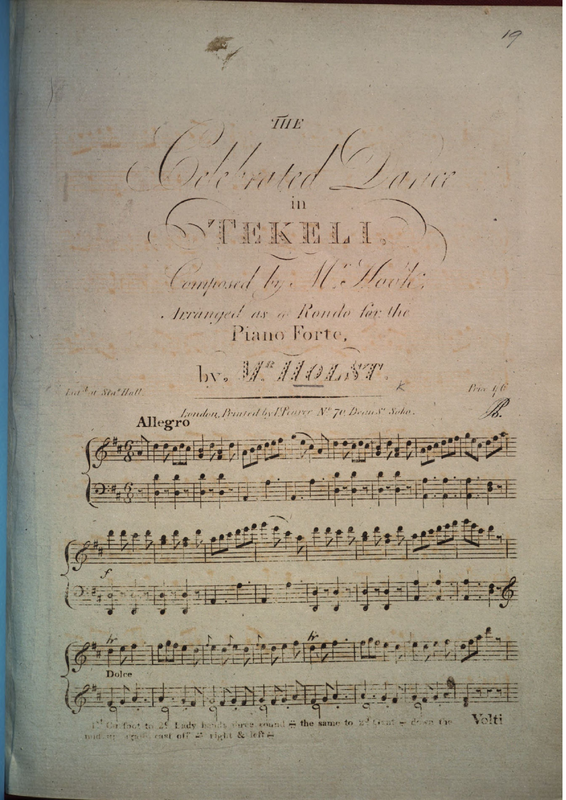 19
THE
Celebrated Dance
in
TEKELI,
Composed by Mr. Hook,
Arranged as a Rondo for the
Piano Forte,
by, MR HOLST.
Ent.d at Sta.s Hall
Price 1/6
London, Printed by Pearce No. 70, Dean St. Soho.
Allegro
f
tr
tr
Dolce
foot to 2d Lady hands three round the same to 2d Gent down the
again, cast off right & left
Volti